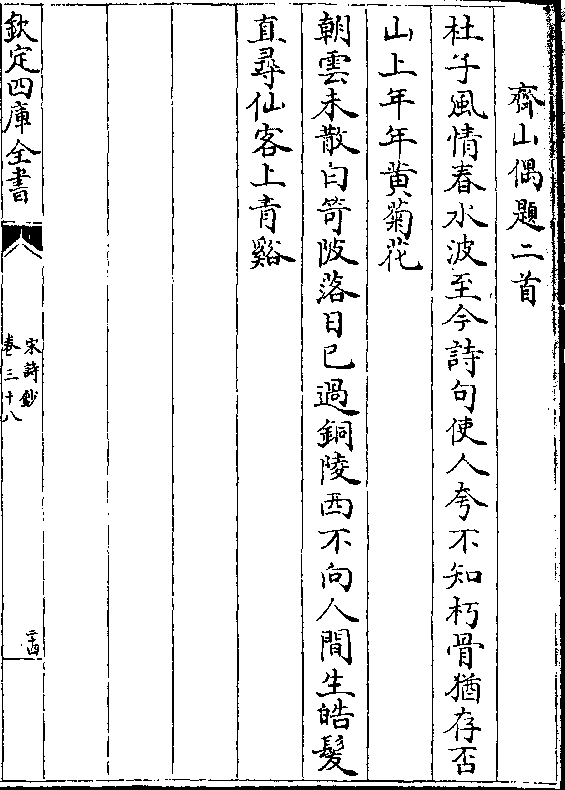 齊山偶題二首
杜子風情春水波至今詩句使人夸不知朽骨猶存否
山上年年黄菊花
朝雲未散白笴陂落日已過銅陵西不向人間生皓髮
直尋仙客上青谿
欽定四庫全書
宋詩鈔
卷三十八
二十四